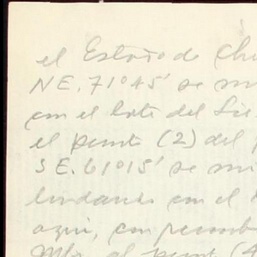 el Estado de Chi
NE. 71°45' se mi
con el lote del Si
el punto (2) del
SE. 61°15' se mi
lindando con el
aqui, con
al punto (4